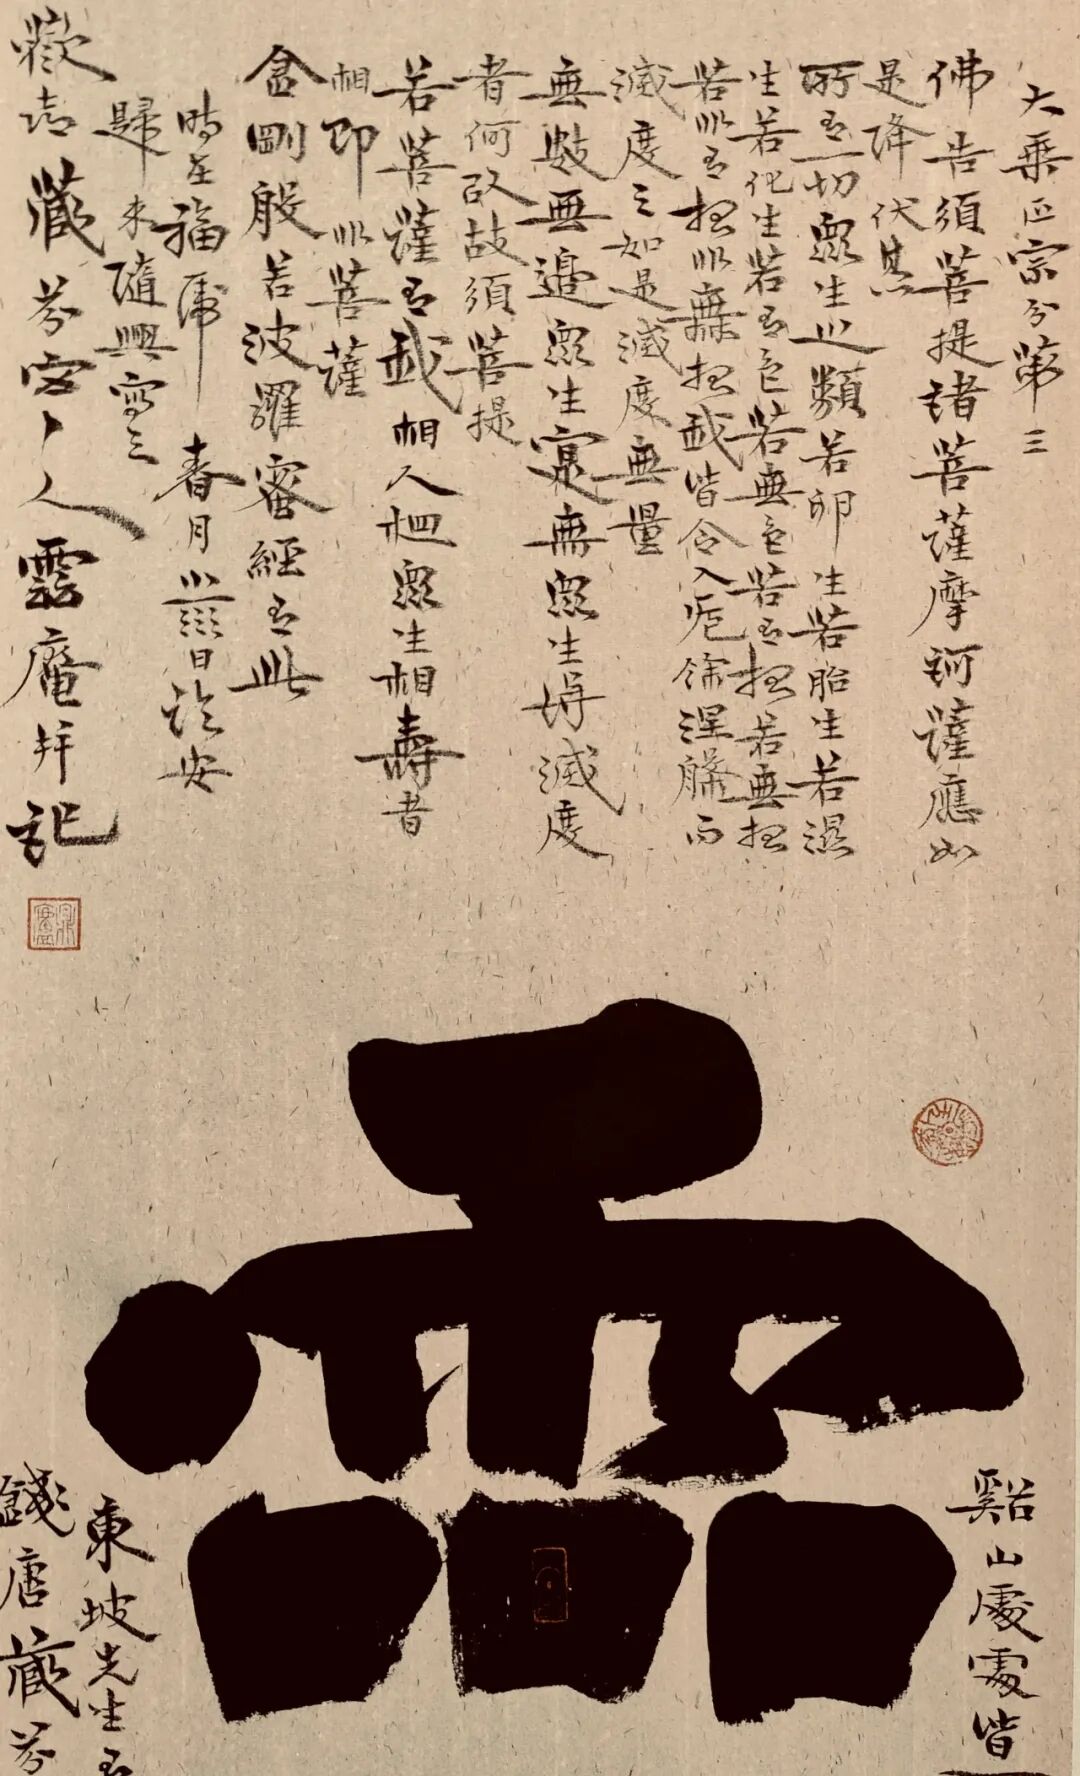 大乘正宗分第三
佛告須菩提諸菩薩摩訶薩應如
是降伏其
所有一切眾生之類若卵生若胎生若濕
生若化生若有色若無色若有想若無想
若非有想非無想我皆令入餘涅槃而
滅度之如是滅度無量
無數無邊眾生實無眾生得滅度
者何以故須菩提
若菩薩有我相人相眾生相壽者
相即非菩薩
金剛般若波羅蜜經有此
時在福 春月 日 安
歸來隨興寫之
藏芬 人 靈 庵拜記
谿山處處皆
東坡先生有
錢唐藏芬